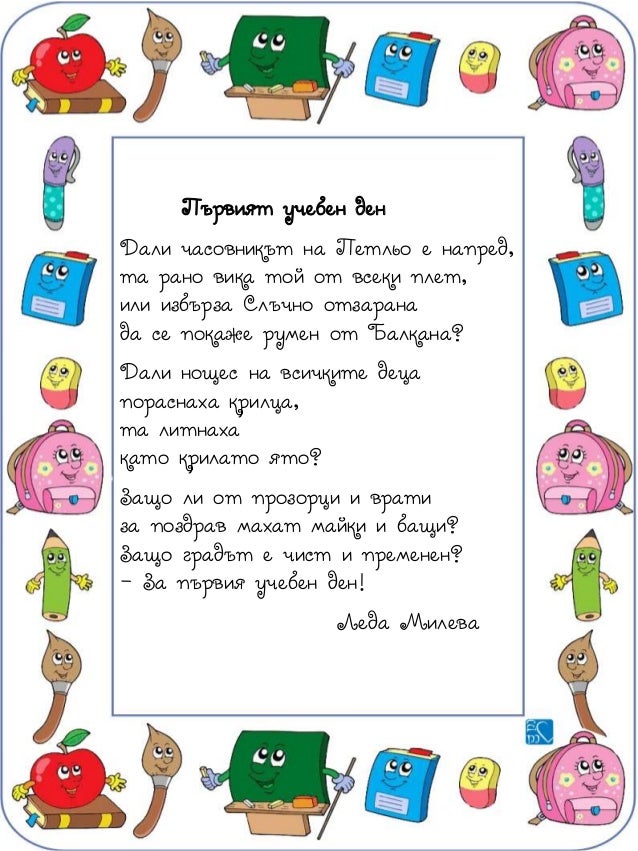 Първият учебен ден
Дали часовникът на Петльо е напред,
та рано вика той от всеки плет,
или избърза Слъчно отзарана
да се покаже румен от Балкана?
Дали нощес на всичките деца
пораснаха крилца,
та литнаха
като крилато ято?
Защо ли от прозорци и врати
за поздрав махат майки и бащи?
Защо градът е чист и пременен?
- За първия учебен ден!
Леда Милева